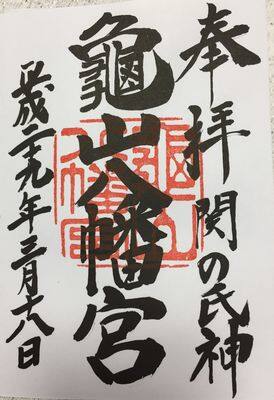 奉拝 関の氏神
龜山八幡宮
平成二十九年三月十八日